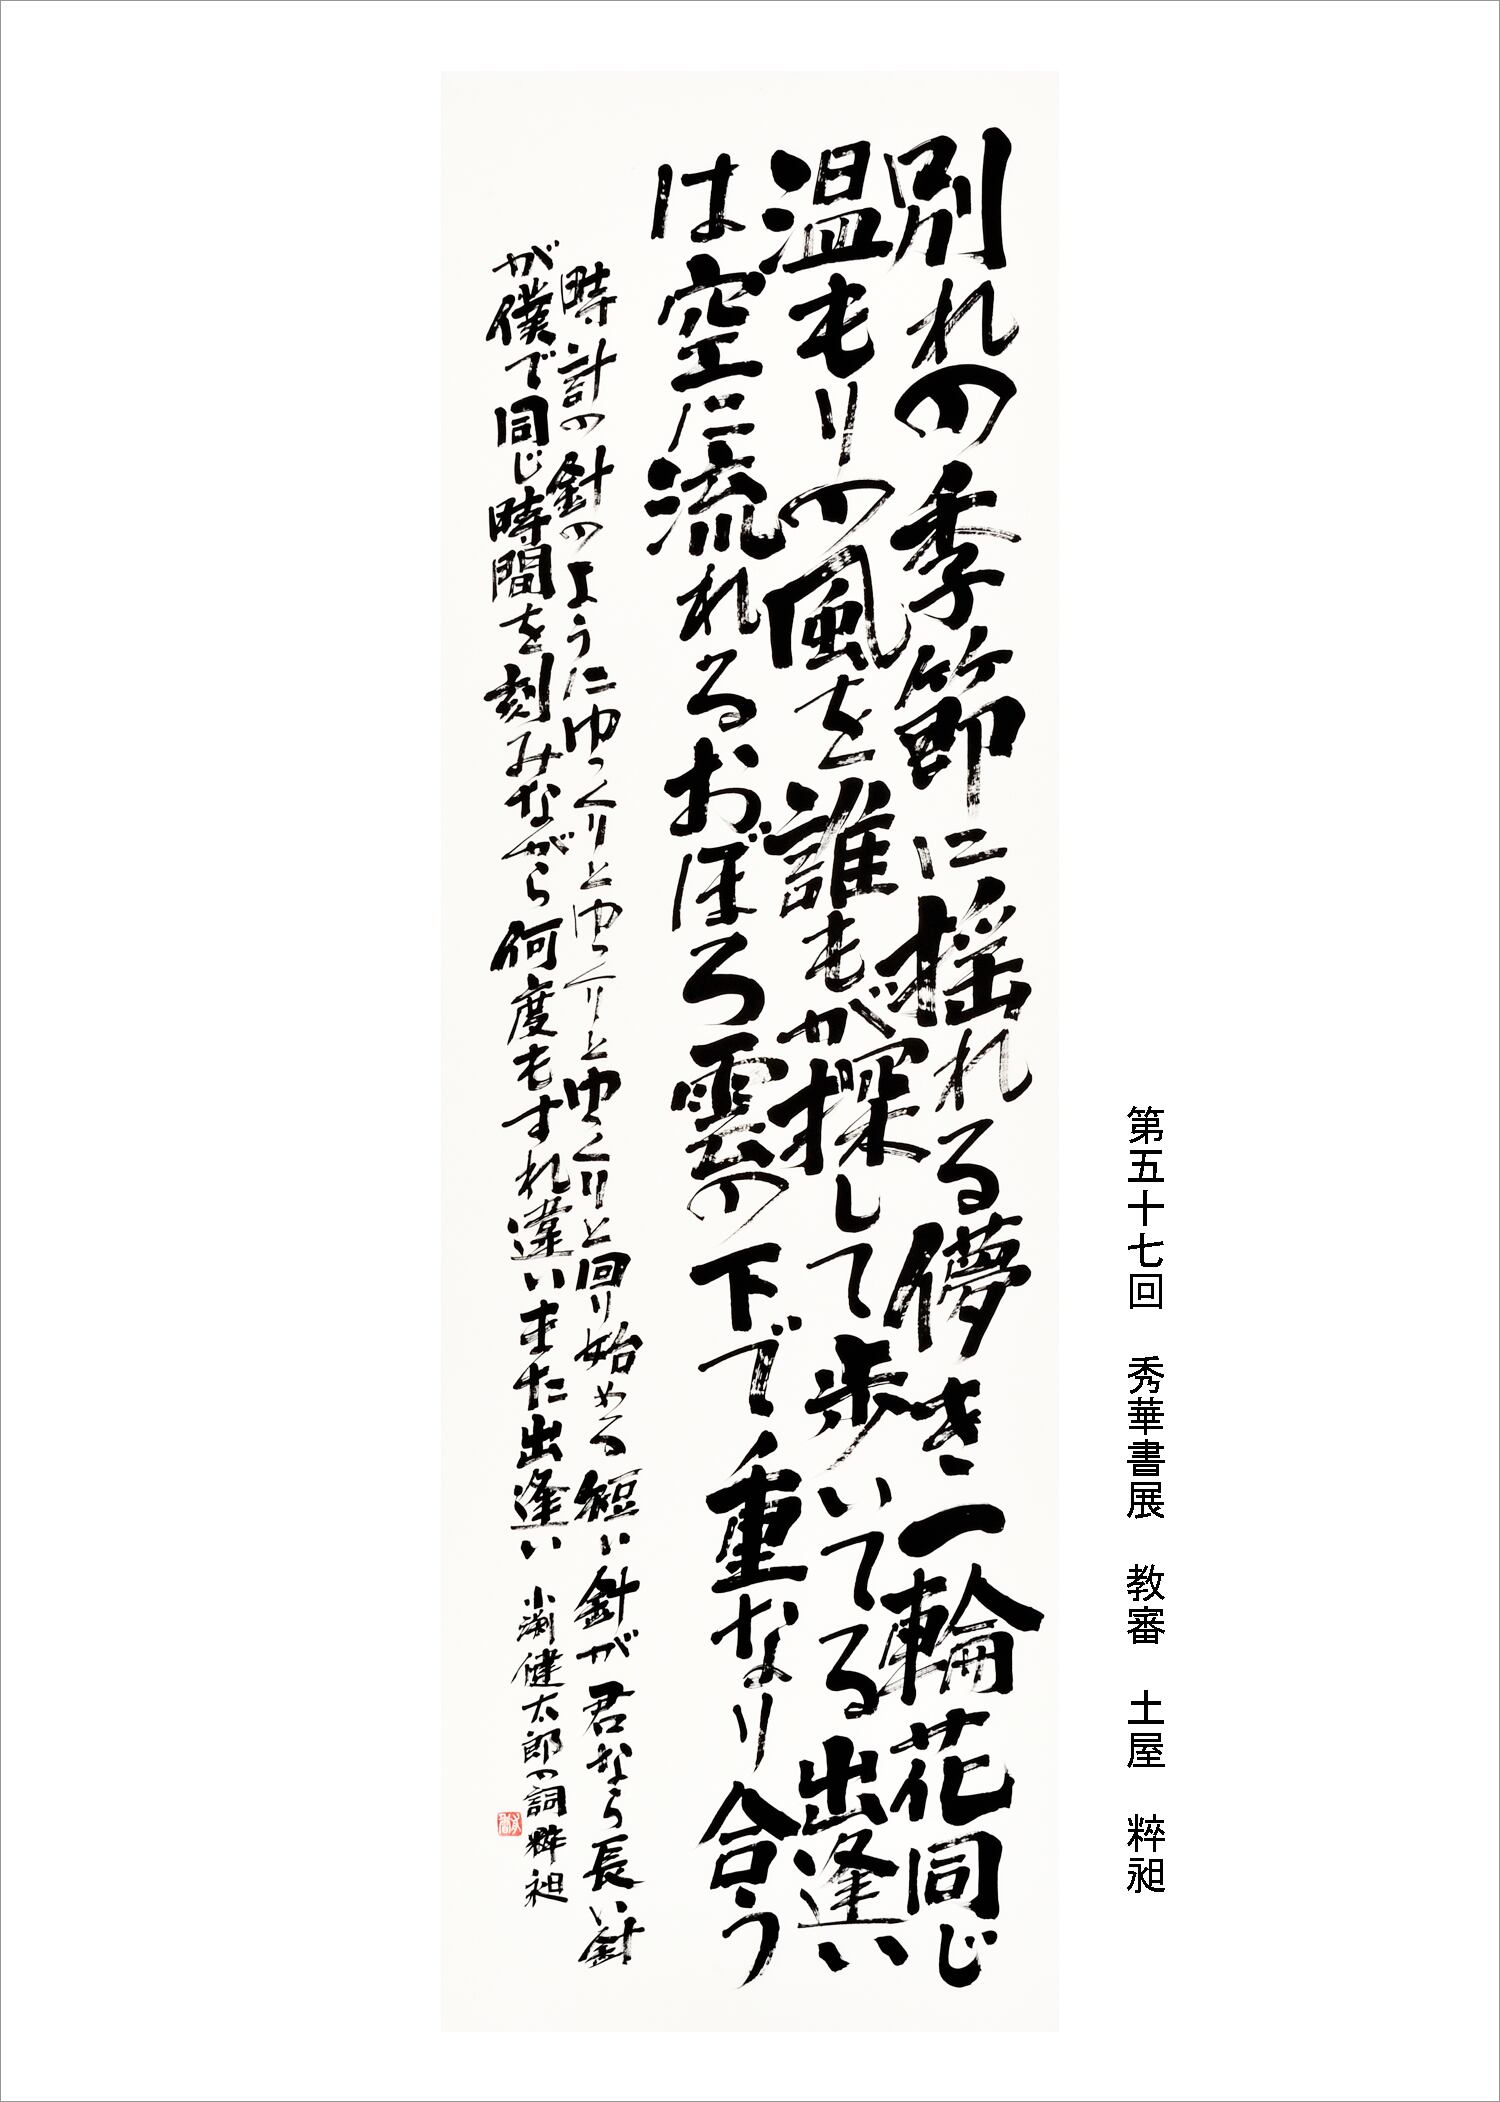 第五十七回　秀華書展　教審　土屋　粹昶
別れの季節に揺れる儚き一輪花同じ
温もりの風を誰もが探して歩いてる出逢い
は空に流れるおぼろ雲の下で重なり合う
時計の針のようにゆっくりとゆっくりとゆっくりと回り始める短い針が君なら長い針
が僕で同じ時間を刻みながら何度もすれ違いまた出逢い　小渕健太郎の詞　粹昶